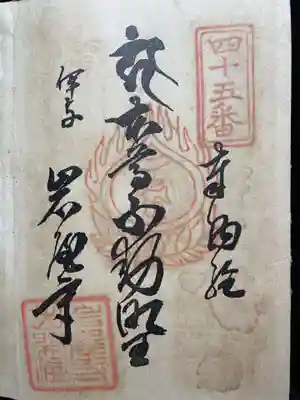 四十五番
奉納経
本尊不動明王
伊予
岩屋寺